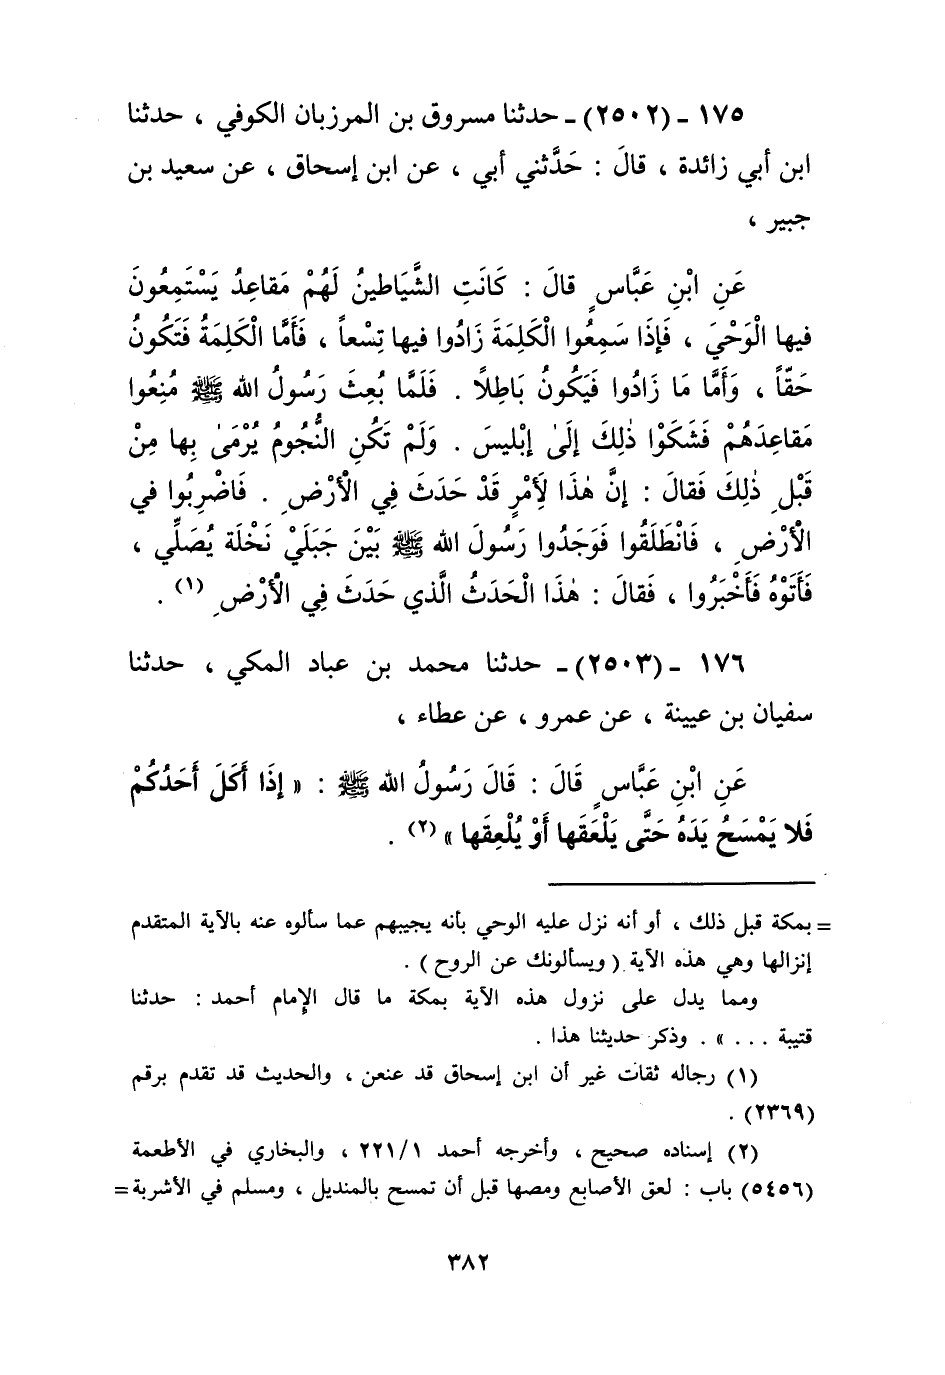 ١٧٥ ـ (٢٥٠٢) ـ حدثنا مسروق بن المرزبان الكوفي ، حدثنا
ابن أبي زائدة ، قالَ : حَدَّثني أبي ، عن ابن إسحاق ، عن سعيد بن
جبير ،
عَنِ ابْنِ عَبَّاسٍ قالَ : كَانَتِ الشَّيَاطينُ لَهُمْ مَقاعِدُ يَسْتَمِعُونَ
فيها الْوَحْيَ ، فَإذَا سَمِعُوا الْكَلِمَةَ زَادُوا فيها تِسْعاً ، فَأَمَّا الْكَلِمَةُ فَتَكُونُ
حَقّاً ، وَأَمَّا مَا زَادُوا فَيَكُونُ بَاطِلًا . فَلَمَّا بُعِثَ رَسُولُ الله ﷺ مُنِعُوا
مَقاعِدَهُمْ فَشَكَوْا ذٰلِكَ إلَىٰ إبْليسَ . وَلَمْ تَكُنِ النُّجُومُ يُرْمَىٰ بِها مِنْ
قَبْلِ ذٰلِكَ فَقالَ : إنَّ هٰذَا لَأِمْرٍ قَدْ حَدَثَ فِي الْأَرْضِ . فَاضْرِبُوا في
الْأَرْضِ ، فَانْطَلَقُوا فَوَجَدُوا رَسُولَ الله ﷺ بَيْنَ جَبَلَيْ نَخْلَة يُصَلِّي ،
فَأَتَوْهُ فَأَخْبَرُوا ، فَقالَ : هٰذَا الْحَدَثُ الَّذي حَدَثَ فِي الْأَرْضِ (١) .
١٧٦ ـ (٢٥٠٣) ـ حدثنا محمد بن عباد المكي ، حدثنا
سفيان بن عيينة ، عن عمرو ، عن عطاء ،
عَنِ ابْنِ عَبَّاسٍ قَالَ : قَالَ رَسُولُ الله ﷺ : « إذَا أَكَلَ أَحَدُكُمْ
فَلا يَمْسَحُ يَدَهُ حَتَّى يَلْعَقَها أَوْ يُلْعِقَها » (٢) .
= بمكة قبل ذلك ، أو أنه نزل عليه الوحي بأنه يجيبهم عما سألوه عنه بالآية المتقدم
إنزالها وهي هذه الآية ( ويسألونك عن الروح ) .
ومما يدل على نزول هذه الآية بمكة ما قال الإمام أحمد : حدثنا
قتيبة . . . » . وذكر حديثنا هذا .
(١) رجاله ثقات غير أن ابن إسحاق قد عنعن ، والحديث قد تقدم برقم
(٢٣٦٩) .
(٢) إسناده صحيح ، وأخرجه أحمد ٢٢١/١ ، والبخاري في الأطعمة
(٥٤٥٦) باب : لعق الأصابع ومصها قبل أن تمسح بالمنديل ، ومسلم في الأشربة =
٣٨٢